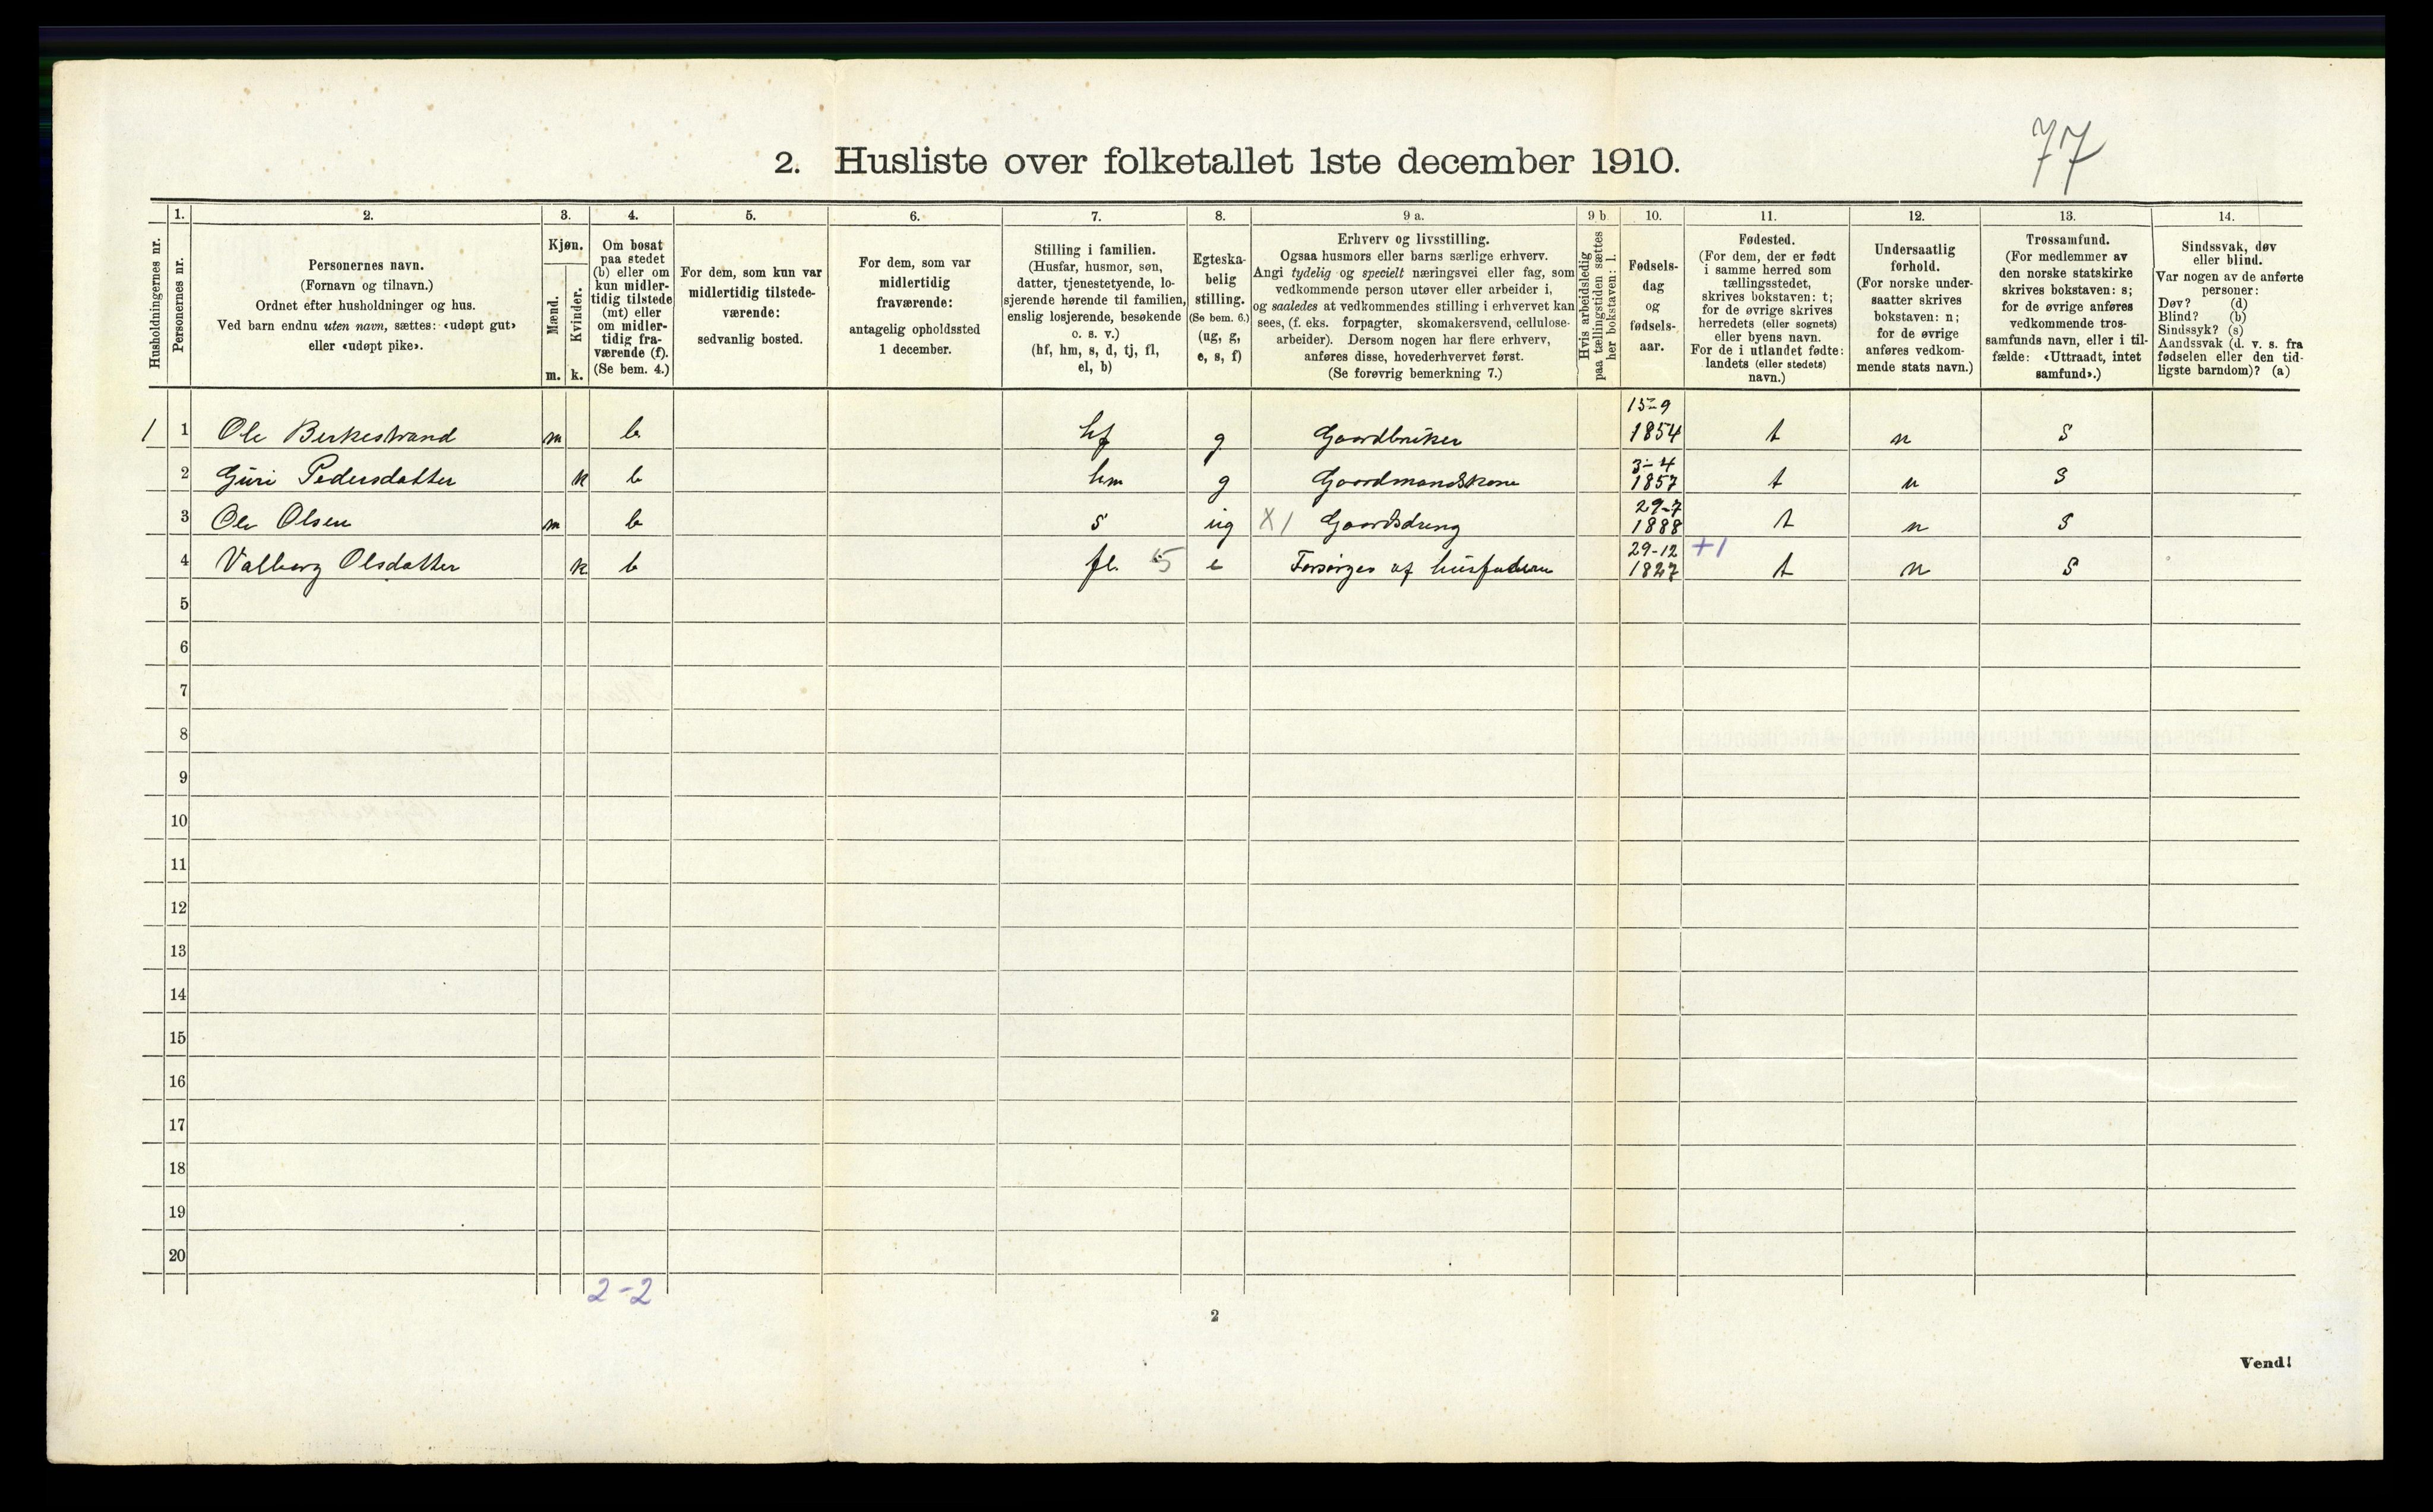 77
2. Husliste over folketallet 1ste december 1910.
Husholdningernes nr.
1.
Personernes nr.
2.
Personernes navn.
(Fornavn og tilnavn.)
Ordnet efter husholdninger og hus.
Ved barn endnu uten navn, sættes: «udøpt gut»
eller «udøpt pike».
3.
Kjøn.
Mænd.
m.
Kvinder.
k.
4.
Om bosat
paa stedet
(b) eller om
kun midler-
tidig tilstede
(mt) eller
om midler-
tidig fra-
værende (f).
(Se bem. 4.)
5.
For dem, som kun var
midlertidig tilstede-
værende:
sedvanlig bosted.
6.
For dem, som var
midlertidig
fraværende:
antagelig opholdssted
1 december.
7.
Stilling i familien.
(Husfar, husmor, søn,
datter, tjenestetyende, lo-
sjerende hørende til familien,
enslig losjerende, besøkende
o. s. v.)
(hf, hm, s, d, tj, fl,
el, b)
8.
Egteska-
belig
stilling.
(Se bem. 6.)
(ug, g,
e, s, f)
9 a.
Erhverv og livsstilling.
Ogsaa husmors eller barns særlige erhverv.
Angi tydelig og specielt næringsvei eller fag, som
vedkommende person utøver eller arbeider i,
og saaledes at vedkommendes stilling i erhvervet kan
sees, (f. eks. forpagter, skomakersvend, cellulose-
arbeider). Dersom nogen har flere erhverv,
anføres disse, hovederhvervet først.
(Se forøvrig bemerkning 7.)
9 b
Hvis arbeidsledig
paa tællingstiden sættes
her bokstaven: l.
10.
Fødsels-
dag
og
fødsels-
aar.
11.
Fødested.
(For dem, der er født
i samme herred som
tællingsstedet,
skrives bokstaven: t;
for de øvrige skrives
herredets (eller sognets)
eller byens navn.
For de i utlandet fødte:
landets (eller stedets)
navn.)
12.
Undersaatlig
forhold.
(For norske under-
saatter skrives
bokstaven: n;
for de øvrige
anføres vedkom-
mende stats navn.)
13.
Trossamfund.
(For medlemmer av
den norske statskirke
skrives bokstaven: s;
for de øvrige anføres
vedkommende tros-
samfunds navn, eller i til-
fælde: «Uttraadt, intet
samfund».)
14.
Sindssvak, døv
eller blind.
Var nogen av de anførte
personer:
Døv? (d)
Blind? (b)
Sindssyk? (s)
Aandssvak (d. v. s. fra
fødselen eller den tid-
ligste barndom)? (a)
1 1 Ole Berkestrand m b hf g Gaardbruker 15-9 1854 t n S
2 Guri Pedersdatter k b hm g Gaardmandskone 3-4 1857 t n S
3 Ole Olsen m b S ug X1 Gaardsdreng 29-7 1888 t n S
4 Valborg Olsdatter k b fl. 5 e Forsørges af husfaderen 29-12 1827 +1 t n S
5
6
7
8
9
10
11
12
13
14
15
16
17
18
19
20
2-2
2
Vend!